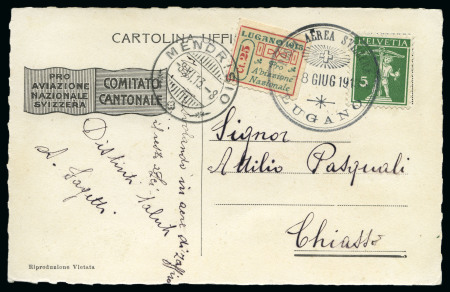 CARTOLINA UFFI
PRO
AVIAZIONE
NAZIONALE
SVIZZERA
COMITATO
CANTONALE
MENDRISIO
LUGANO 1913
Ct. 25
Pro
Aviazione
Nazionale
AEREA
8 GIUG 191
LUGANO
HELVETIA
5
Signor
Attilio Pasquali
Chiasso
Distinti
saluti
A.
Riproduzione Vietata